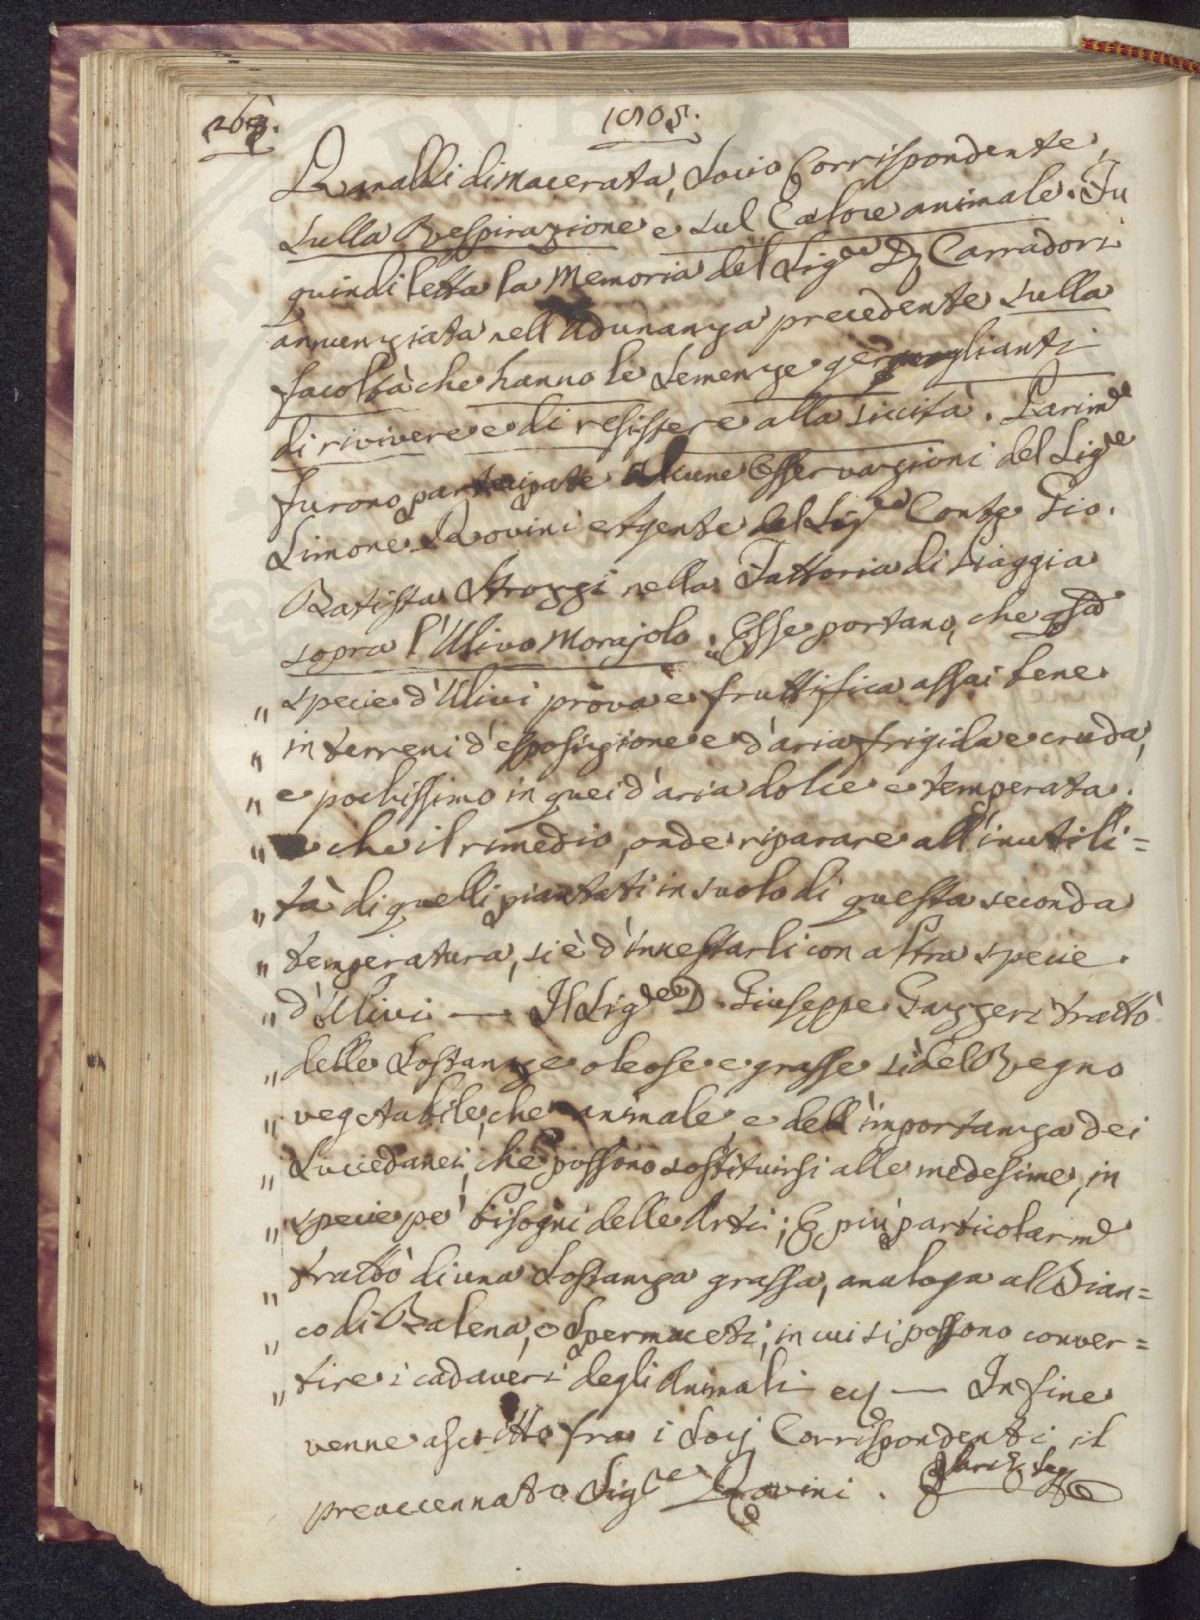 1805.
di Macerata, Socio Corrispondente,
Sulla Respirazione e sul Calore animale. Fu
quindi letta la Memoria del Sig.re D. Carradori
annunziata nell'Adunanza precedente sulla
facoltà che hanno le Semenze germoglianti
di rivivere e di resistere alla siccità. Parim.e
furono partecipate alcune Osservazioni del Sig.re
Simone Agente del Sig.re Conte Gio.
Batista Strozzi nella Fattoria di Piaggia
sopra l'Ulivo Morajolo: Esse portano, che qsta
„ specie d'Ulivi prova e fruttifica assai bene
„ in terreni d'esposizione e d'aria frigida e cruda,
„ e pochissimo in quei d'aria dolce e temperata.
„ e che il rimedio, onde riparare all'inutili=
„ tà di quelli piantati in suolo di questa seconda
„ temperatura, si è d'innestarli con altra specie
„ d'Ulivi — Il Sig.re D. Giuseppe Gazzeri trattò
„ delle Sostanze oleose e grasse sì del Regno
„ vegetabile, che animale, e dell'importanza dei
„ Succedanei, che possono sostituirsi alle medesime, in
„ specie pe' bisogni delle Arti; E più particolarm.e
„ trattò di una Sostanza grassa, analoga al Bian=
„ co di Balena, o Spermaceti, in cui si possono conver=
„ tire i cadaveri degli Animali ec — In fine
venne ascritto fra i Socj Corrispondenti il
preaccennato Sig.re